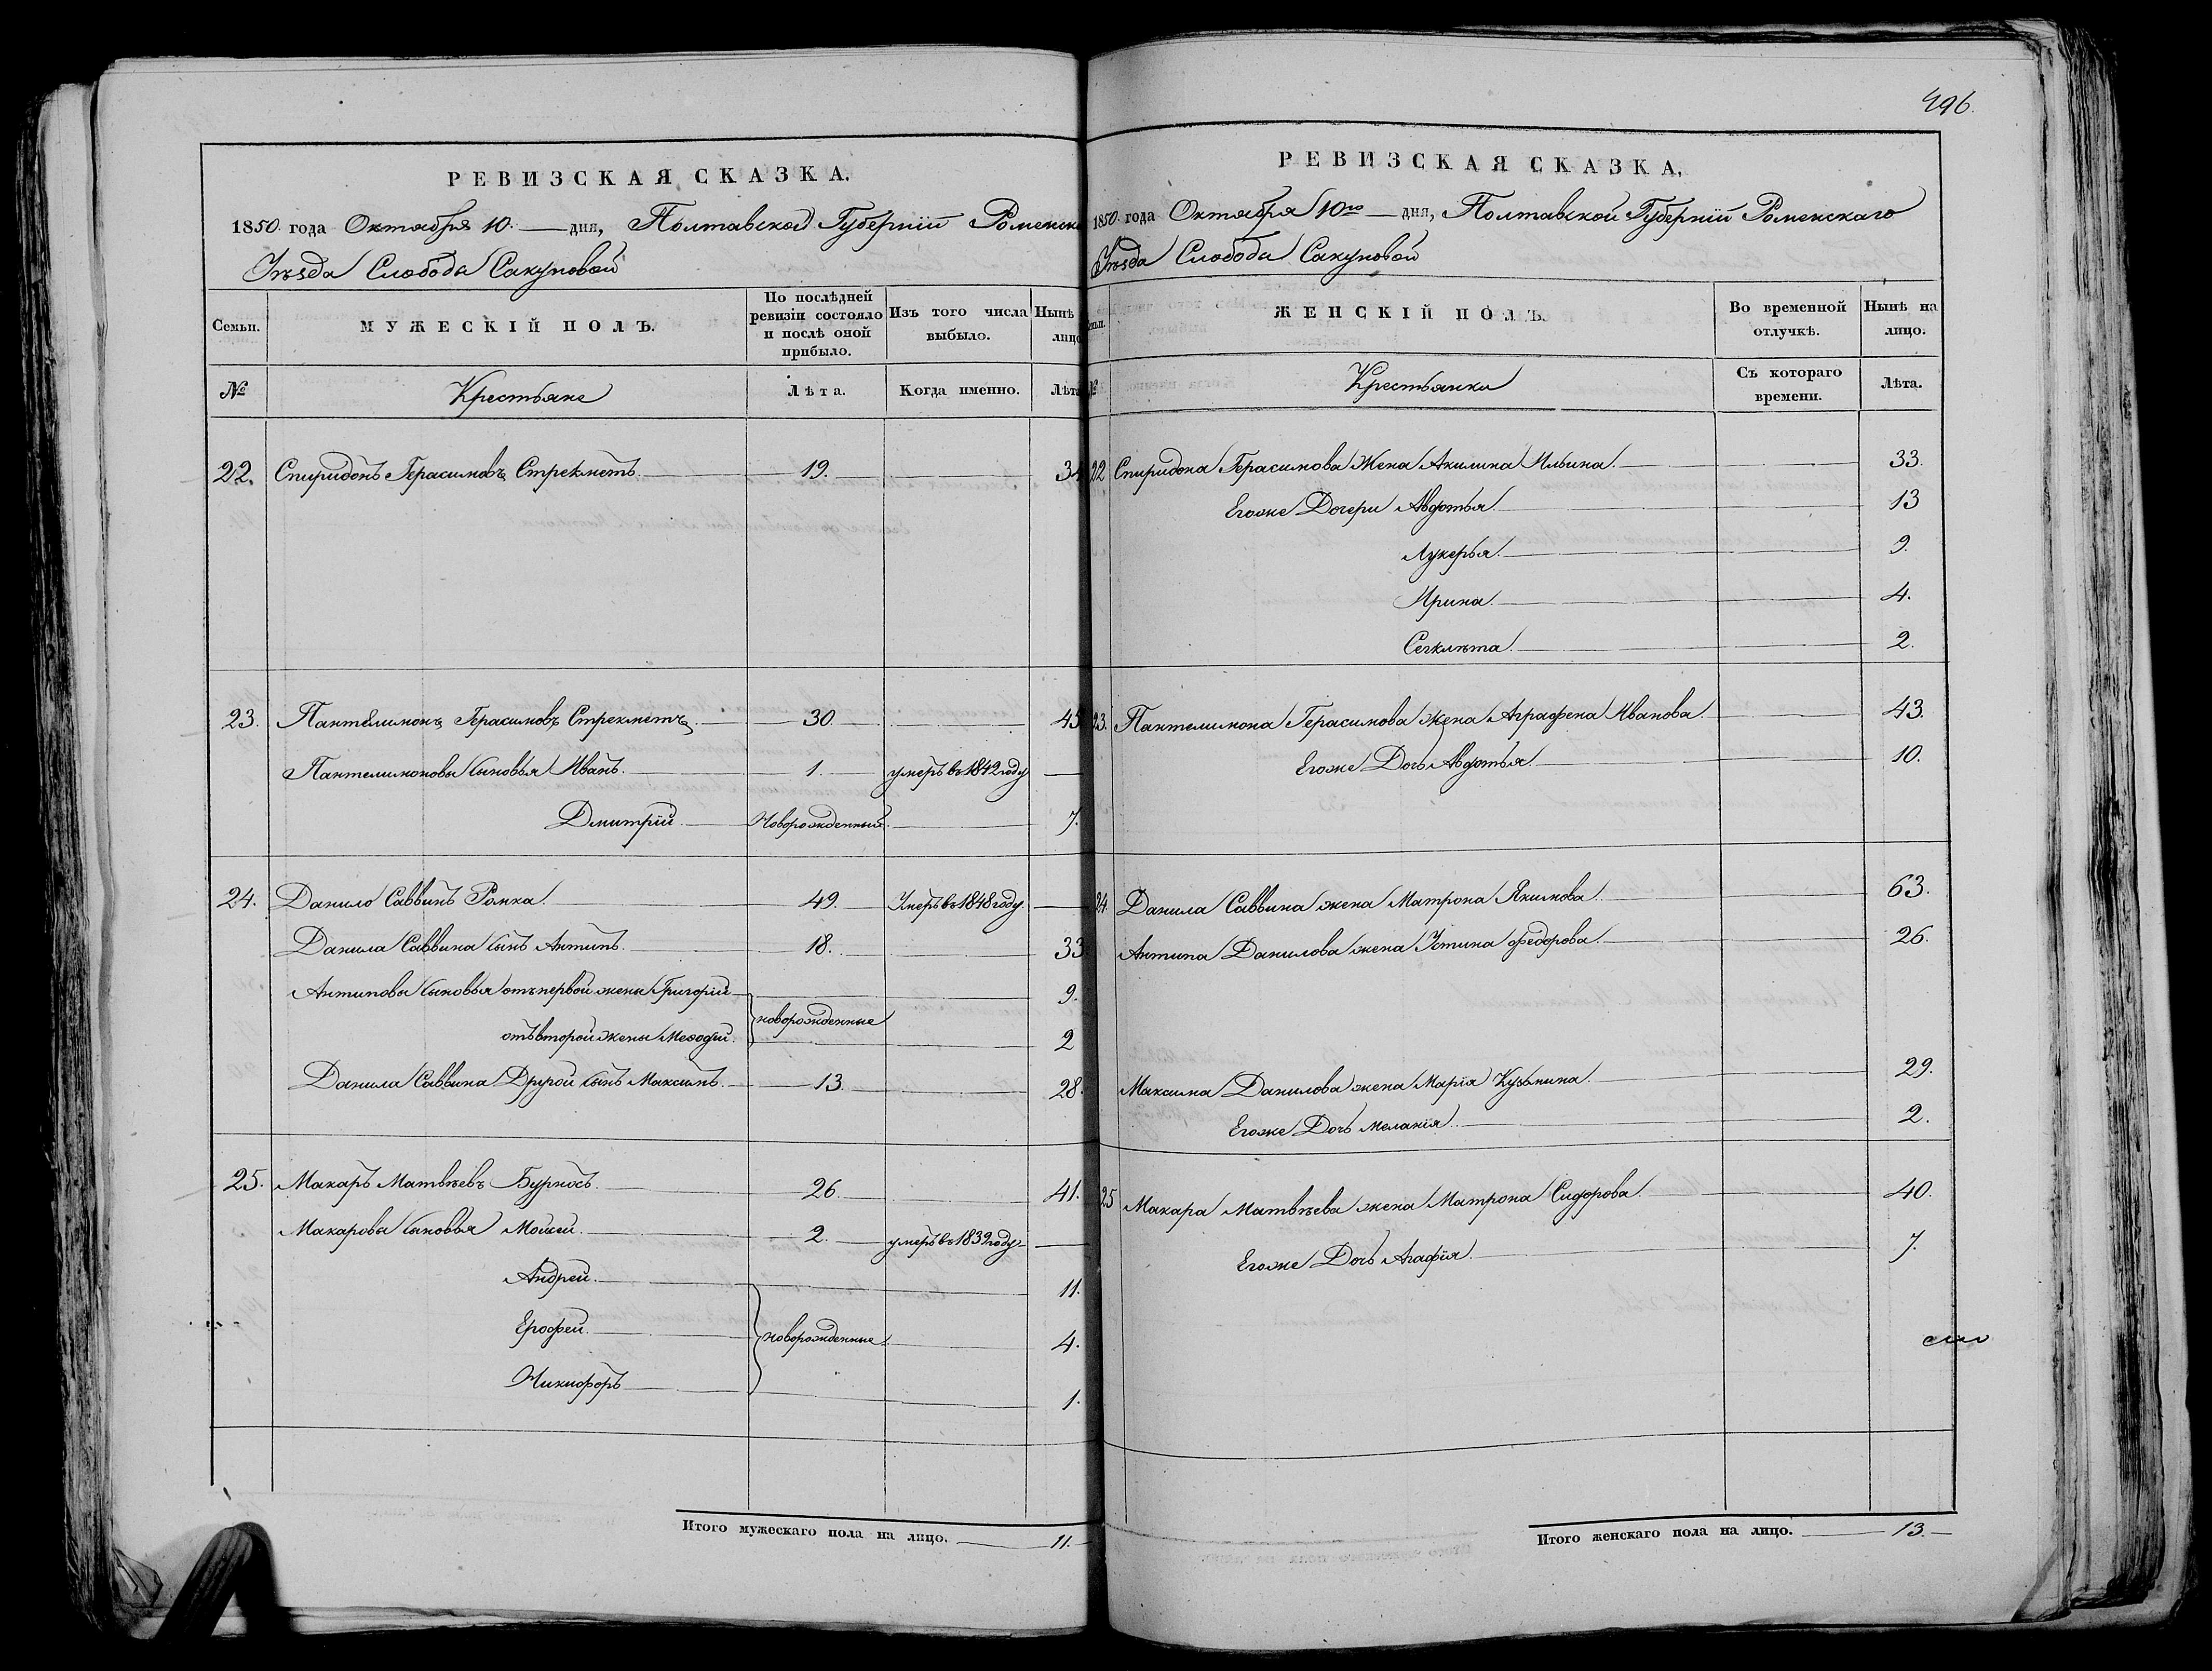 РЕВИЗСКАЯ СКАЗКА.
1850 года Октября 10. — дня, Полтавской Губерніи Роменска
Уѣзда Слобода Сакуновой
Семьи. МУЖЕСКІЙ ПОЛЪ. По послѣдней ревизіи состояло и послѣ оной прибыло. Изъ того числа выбыло. Нынѣ лицо
№ Крестьяне Лѣта. Когда именно. Лѣта
22. Спиридонъ Герасимовъ Стрекметъ. 19. 34
23. Пантелимонъ Герасимовъ Стрекметъ. 30. 45
Пантелимоновы сыновья Иванъ. 1. умеръ въ 1842 году
Дмитрій. Новорожденный. 7.
24. Данило Саввинъ Ромка. 49. Умеръ въ 1848 году.
Данила Саввина сынъ Антипъ. 18. 33
Антиповы сыновья отъ первой жены Григорій 9.
новорожденные
отъ второй жены Меѳодій. 2
Данила Саввина Другой сынъ Максимъ. 13. 28.
25. Макаръ Матвѣевъ Бурносъ. 26. 41.
Макаровы сыновья Мойсей. 2. умеръ въ 1839 году
Андрей. 11.
Ерофей. новорожденные 4.
Никифоръ 1.
Итого мужескаго пола на лицо. 11.
496.
РЕВИЗСКАЯ СКАЗКА.
1850 года Октября 10го — дня, Полтавской Губерніи Роменскаго
Уѣзда Слобода Сакуновой
ЖЕНСКІЙ ПОЛЪ. Во временной отлучкѣ. Нынѣ на лицо.
№ Крестьянки Съ котораго времени. Лѣта.
22 Спиридона Герасимова Жена Акилина Ильина. 33.
Егоже Дочери Авдотья. 13
Лукерья. 9.
Ирина. 4.
Секлѣта. 2.
23. Пантелимона Герасимова жена Аграфена Иванова. 43.
Егоже Дочь Авдотья. 10.
24. Данила Саввина жена Матрона Якимова. 63.
Антипа Данилова жена Устина Федорова. 26.
Максима Данилова жена Марія Кузьмина. 29.
Егоже Дочь Меланія. 2.
25 Макара Матвѣева жена Матрона Сидорова. 40.
Егоже Дочь Агафія. 7.
Итого женскаго пола на лицо. 13.